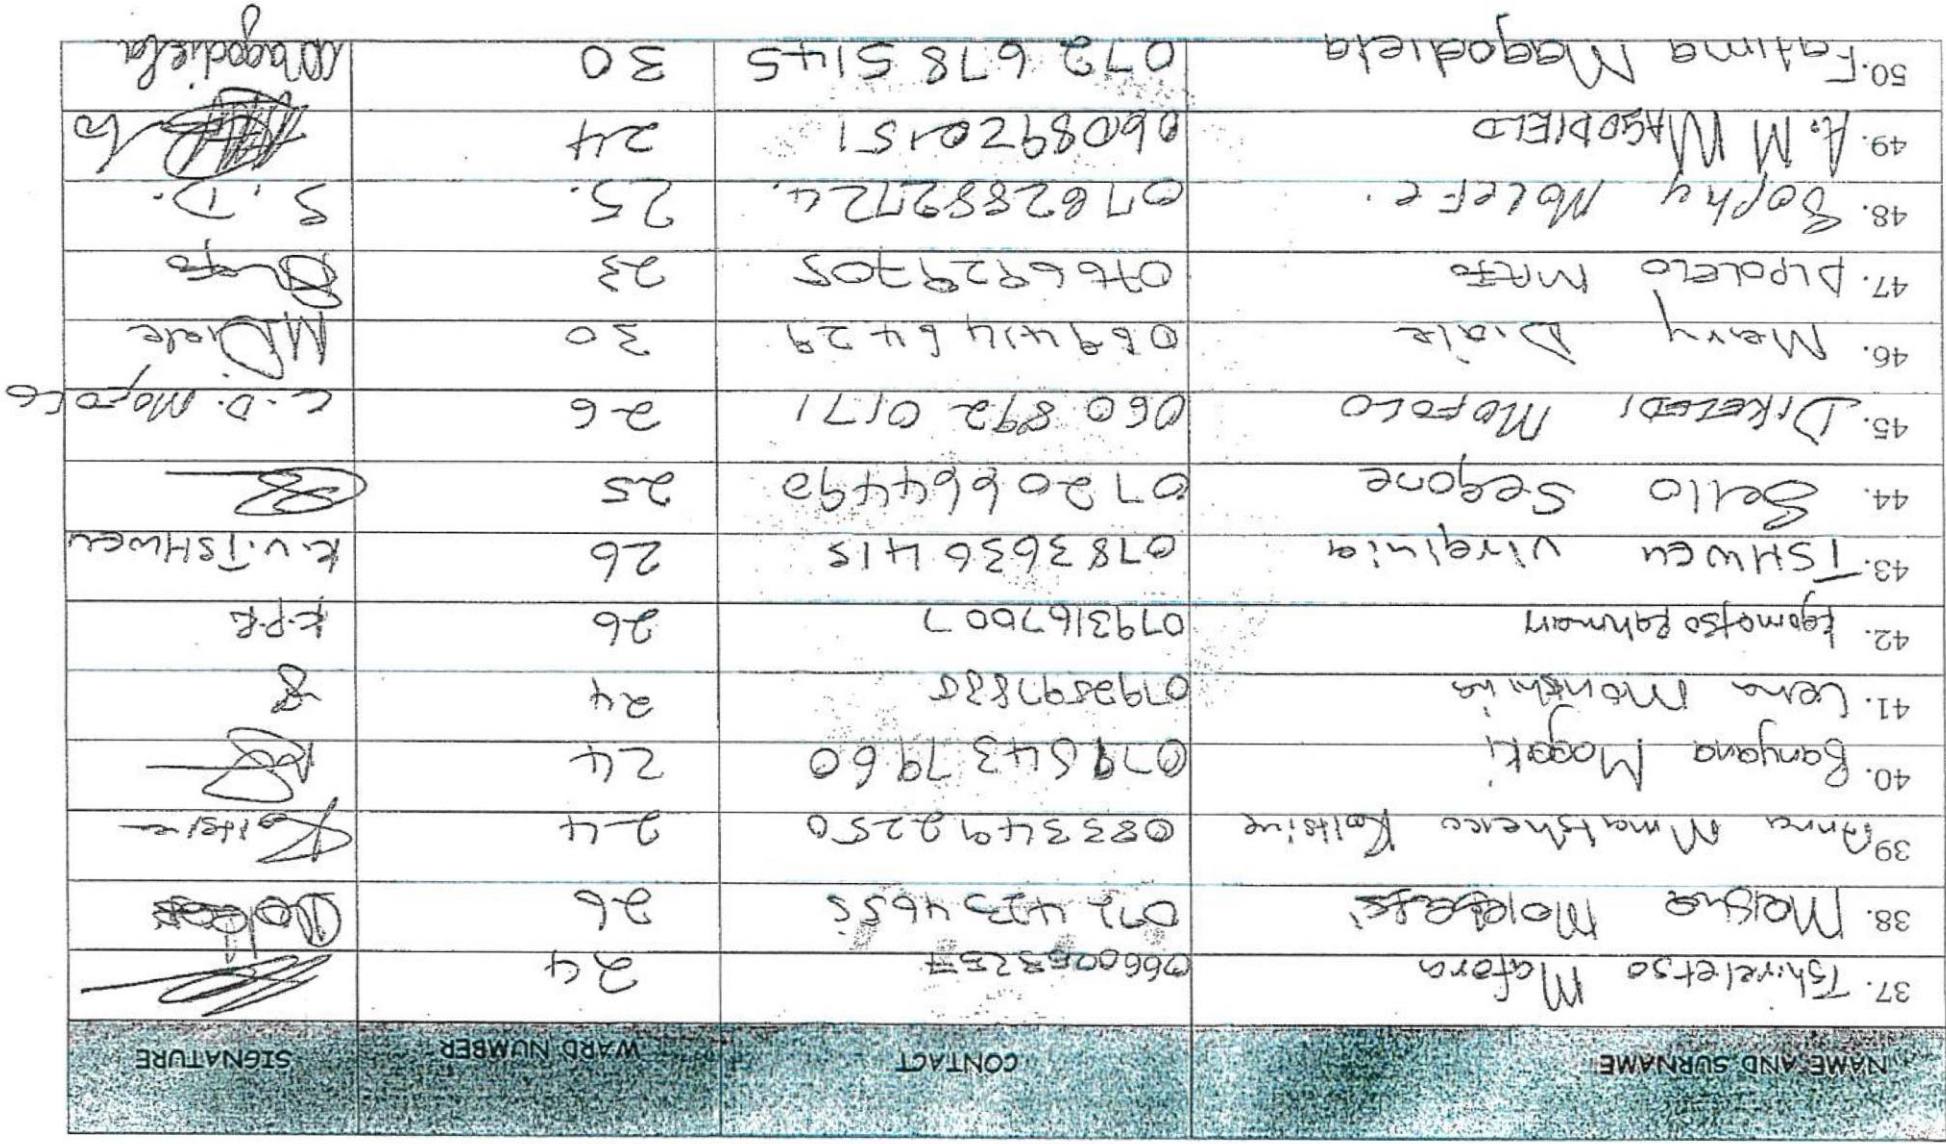 NAME AND SURNAME CONTACT WARD NUMBER SIGNATURE
37. Tshireletso Mafora 24
38. Meisha 072 423 4655 26
39. Anna Mmatshereo 0833492250 24
40. Banyana Magoki 0795437960 24
41. Lena 0792597835 24
42. Kgomotso Rahman 0793167007 26 K.P.R
43. TSHWEU Virginia 0783636415 26 K.V.TSHWEU
44. Sello Segone 0720664490 25
45. DIKELEDI MOFOLO 060 892 0171 26 L.D. MOFOLO
46. Merry Diale 30 M Diale
47. DIPOLELO 0766929705 23
48. Sophy MOLEFE. 0762882724. 25. S.D.
49. A.M MAGODIELO 0608920151 24
50. Fatima Magodiela 072 678 5145 30 Magodiela